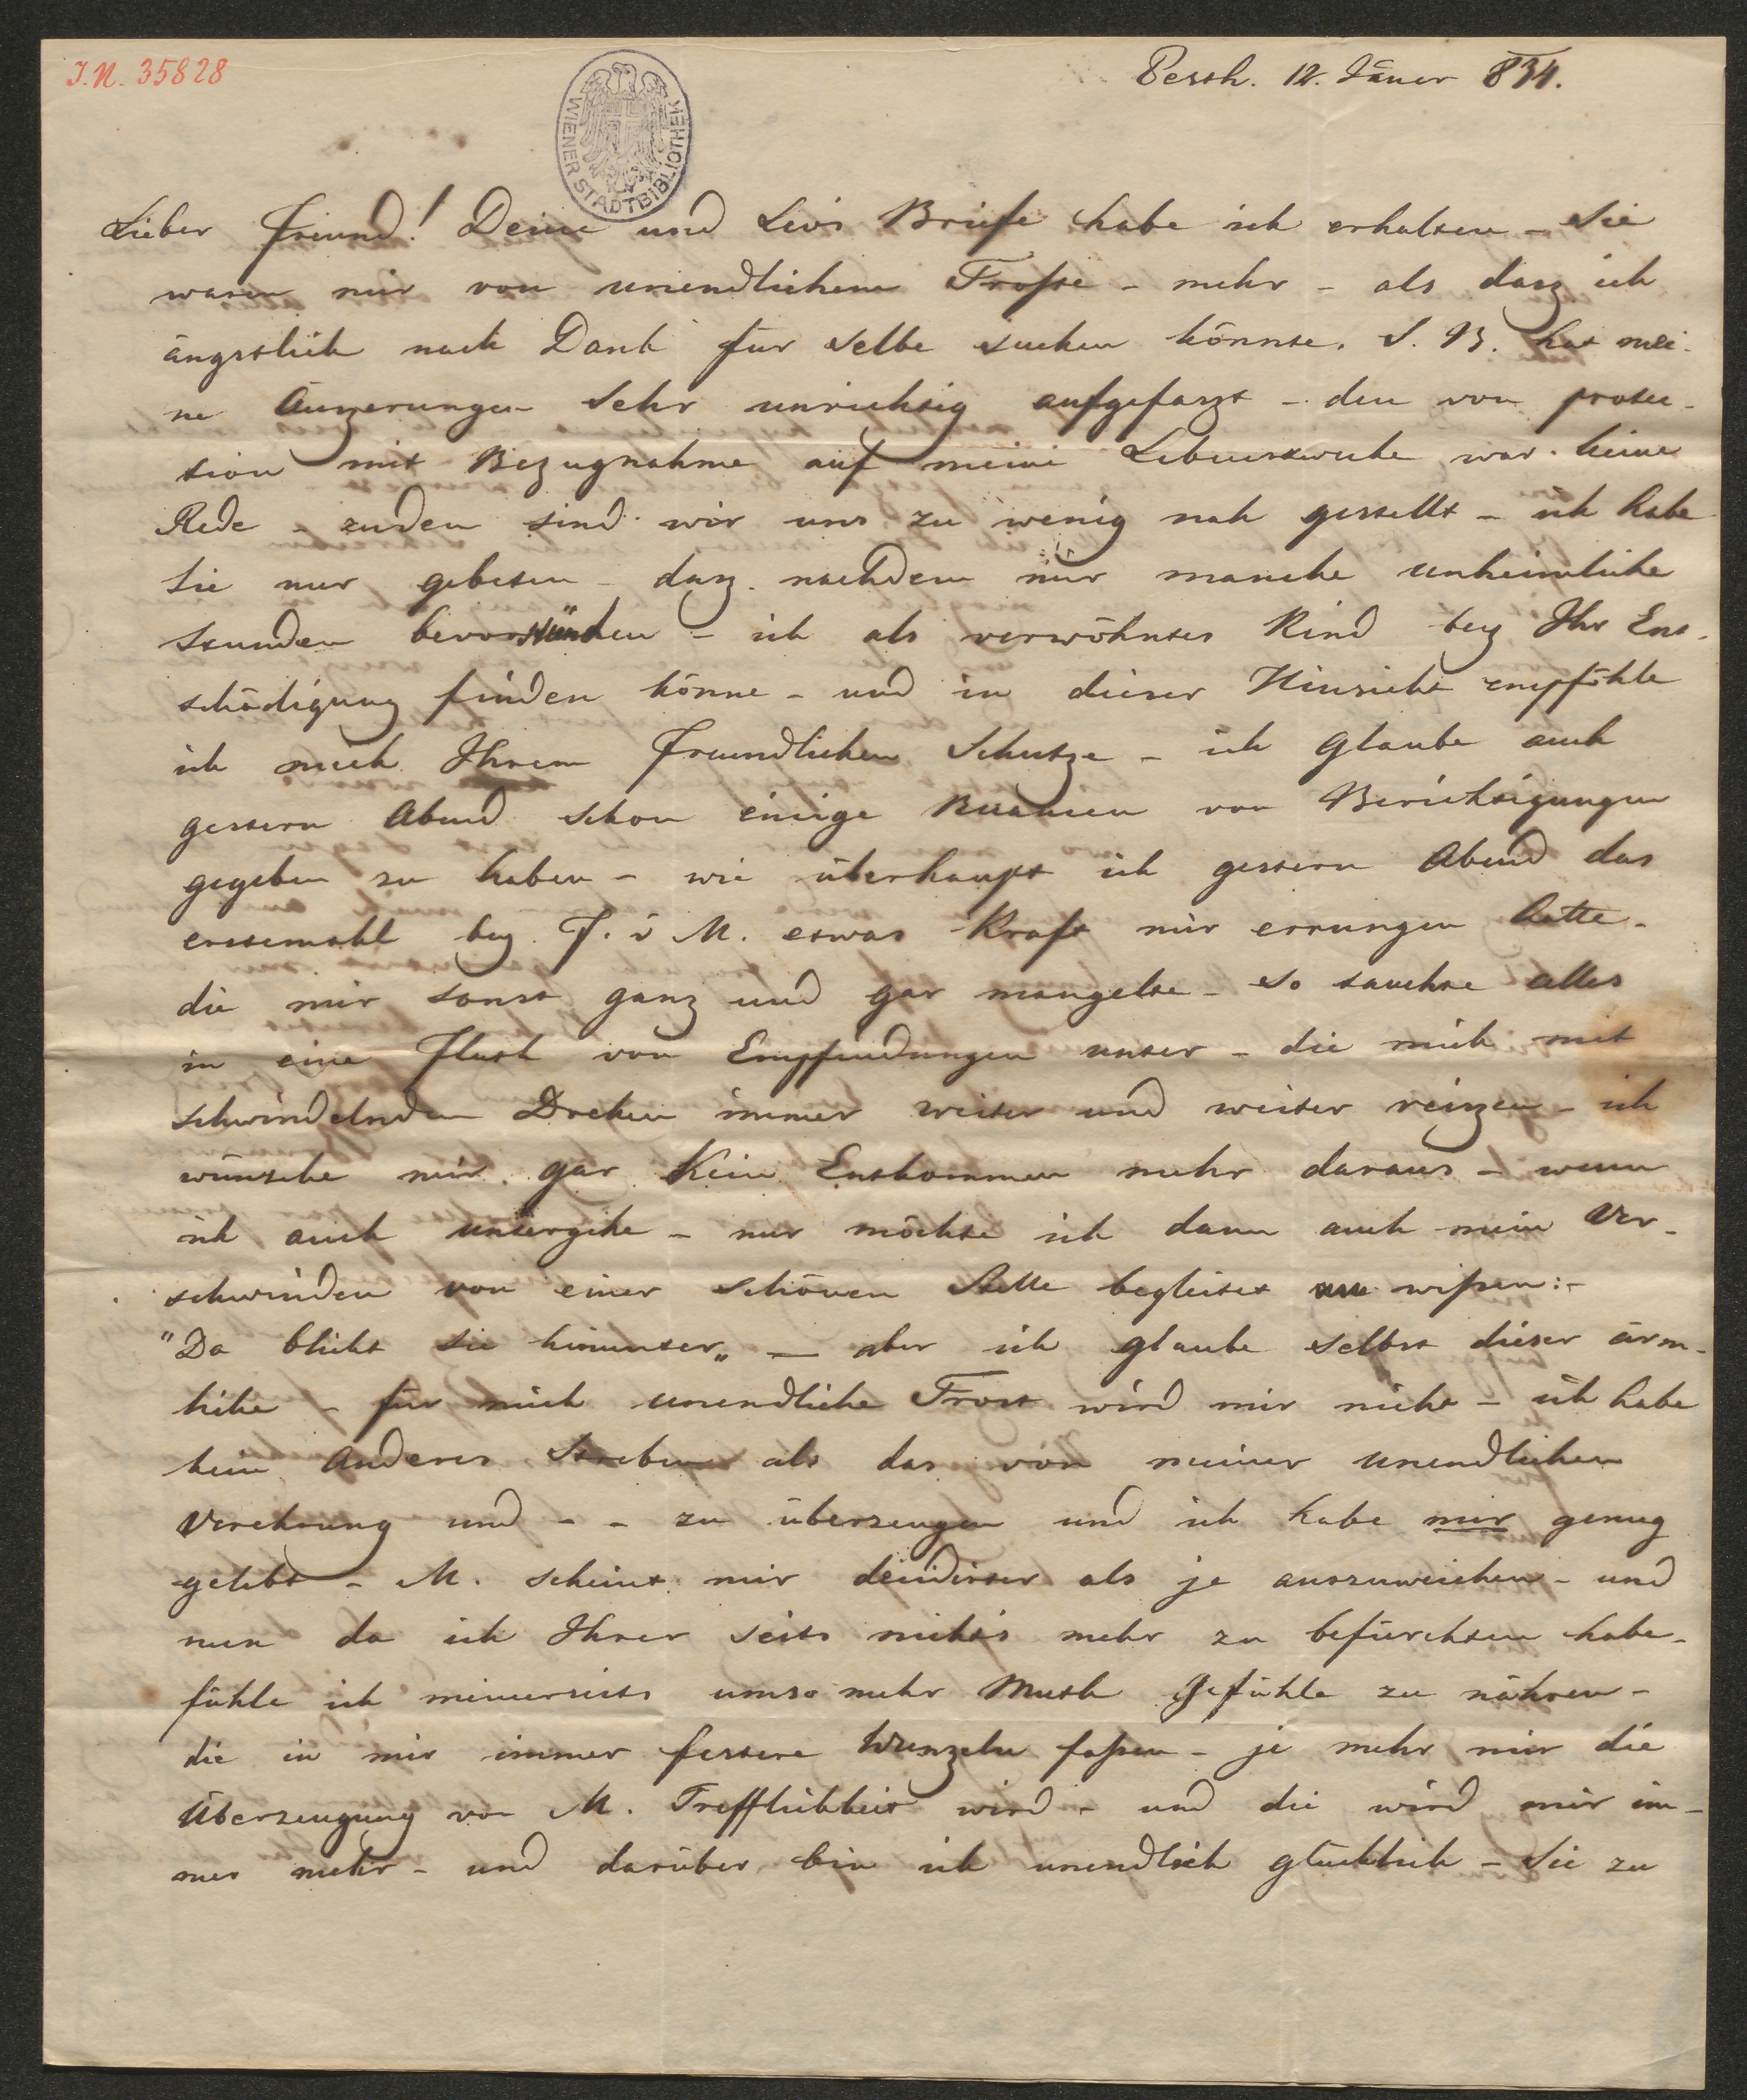 I.N. 35828
WIENER STADTBIBLIOTHEK
Pesth. 12. Jäner 834.
Lieber Freund! Deine und Levis Briefe habe ich erhalten – Sie
waren mir von unendlichem Troste – mehr – als dasz ich
ängstlich nach Dank für selbe suchen könnte. S. B. hat mei-
ne Äuszerungen sehr unrichtig aufgefaszt – den von protec-
tion mit Bezugnahme auf meine Lebenszwecke war keine
Rede – zudem sind wir uns zu wenig nah gestellt – ich habe
Sie nur gebeten – dasz nachdem mir manche unheimliche
Stunden bevorstünden – ich als verwöhntes Kind bey Ihr Ent-
schädigung finden könne – und in dieser Hinsicht empföhle
ich mich Ihrem freundlichen Schutze – ich glaube auch
gestern Abend schon einige Nuancen von Berichtigungen
gegeben zu haben – wie überhaupt ich gestern Abend das
erstemahl bey F. v M. etwas Kraft mir errungen hatte –
die mir sonst ganz und gar mangelte – So tauchte alles
in eine Fluth von Empfindungen unter – die mich mit
schwindelndem Drehen immer weiter und weiter reiszen – ich
wünsche mir gar Kein Entkommen mehr daraus – wenn
ich auch untergehe – nur möchte ich dann auch mein Ver-
schwinden von einer schönen Stelle begleitet wissen: –
"Da blickt sie hinunter„ — aber ich glaube selbst dieser ärm-
liche – für mich unendliche Trost wird mir nicht – ich habe
kein Anderes Streben als das von meiner unendlichen
Verehrung und – – zu überzeugen und ich habe mir genug
gelebt – M. scheint mir deutlicher als je auszuweichen – und
nun da ich Ihrer Seits nichts mehr zu befürchten habe –
fühle ich meinerseits umso mehr Muth Gefühle zu nähren –
die in mir immer festere Wurzeln faszen – je mehr mir die
Überzeugung von M. Trefflichkeit wird – und die wird mir im-
mer mehr – und darüber bin ich unendlich glücklich – Sie zu